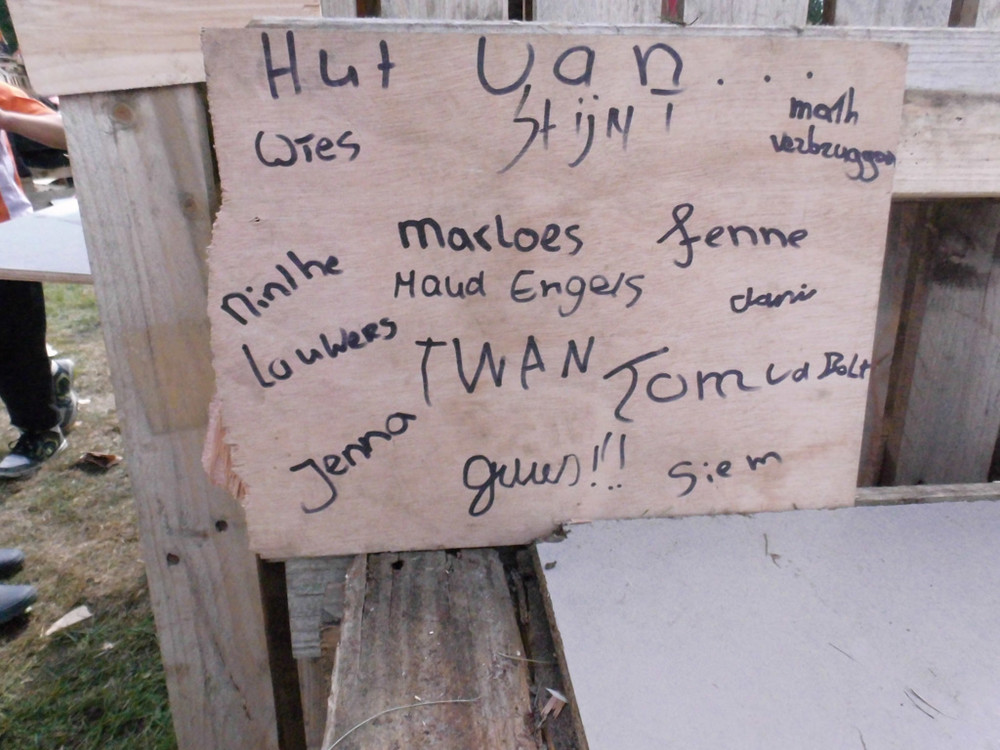 Hut van....
Stijn!
math
verbruggen
Wies
Marloes
fenne
Ninthe
Lauwers
Maud Engels
dani
TWAN
Tom vd Bolt
Jenna
guus!!!
Siem